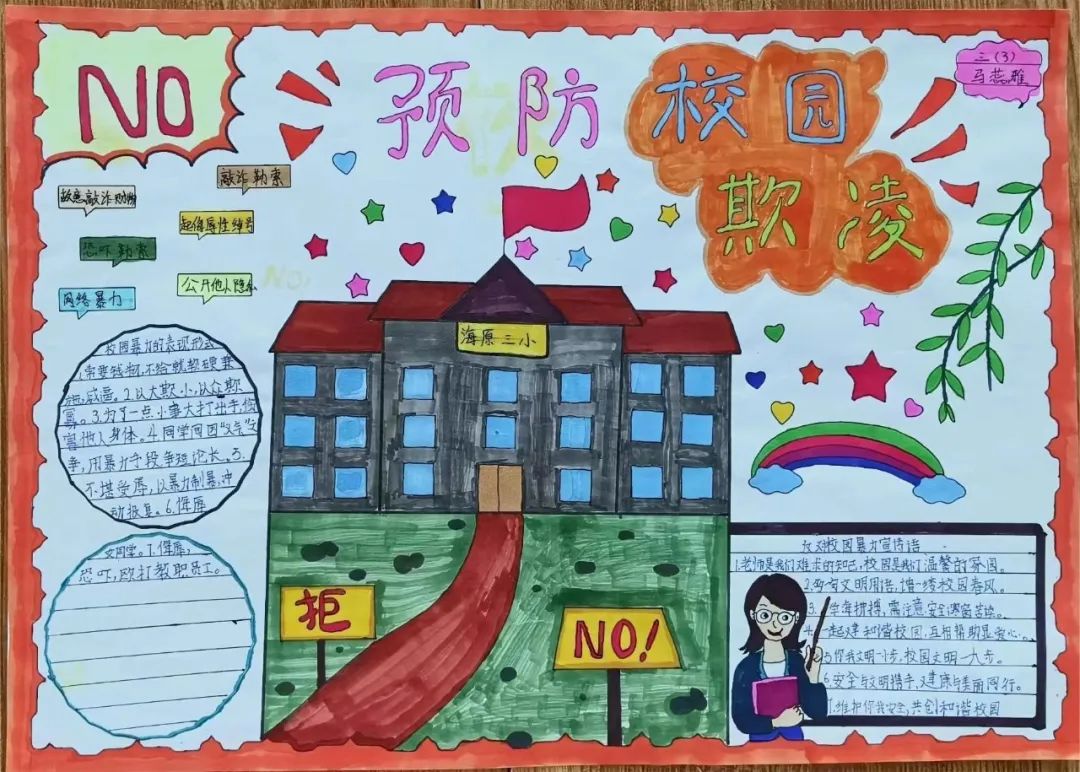 NO
预防校园
欺凌
三(3)
马蕊雅
敲诈勒索
故意敲诈
起侮辱性绰号
恐吓勒索
公开他人隐私
网络暴力
NO!
海原三小
校园暴力的表现形式
1.索要钱物,不给就报硬兼
施,威逼。2.以大欺小,以众欺
寡。3.为了一点小事大打出手,伤
害他人身体。4.同学间因“义气”之
争,用暴力手段争短论长。5.
不堪受辱,以暴制暴,冲
动报复。6.侮辱
女同学。7.侮辱,
恐吓,殴打教职员工。
拒
NO!
反对校园暴力宣传语
1.老师是我们难求的知己,校园是我们温馨的家园。
2.多句文明用语,增一缕校园春风。
3.学海拼搏,需注意安全
4.一起建和谐校园,互相帮助显爱心。
5你我文明一小步,校园文明一大步。
6安全与文明携手,健康与美丽同行。
7.维护你我安全,共创和谐校园